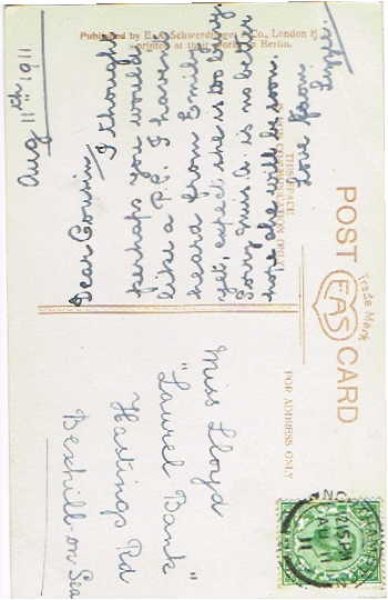 Published by E. A. Schwerdtfeger & Co., London E.
printed at their works in Berlin.
POST CARD
Trade Mark
EAS
THIS SPACE
FOR COMMUNICATION ONLY
FOR ADDRESS ONLY
Aug 11th 1911.
Dear Cousin,
I thought
perhaps you would
like a P.C. I haven't
heard from Emily
yet, expect she is too busy.
Sorry Miss A. is no better
hope she will be soon.
Love from
Miss Lloyd
"Laurel Bank"
Hastings Rd
Bexhill-on-Sea